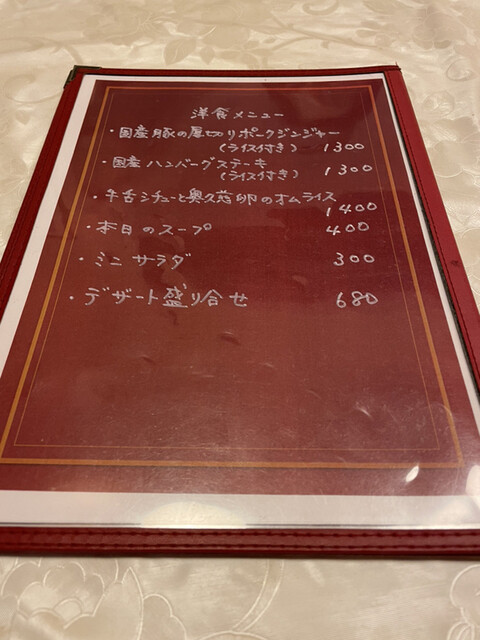 洋食メニュー
・国産豚の厚切りポークジンジャー
(ライス付き) 1300
・国産ハンバーグステーキ
(ライス付き) 1300
・牛舌シチューと奥久慈卵のオムライス
1400
・本日のスープ 400
・ミニサラダ 300
・デザート盛り合せ 680